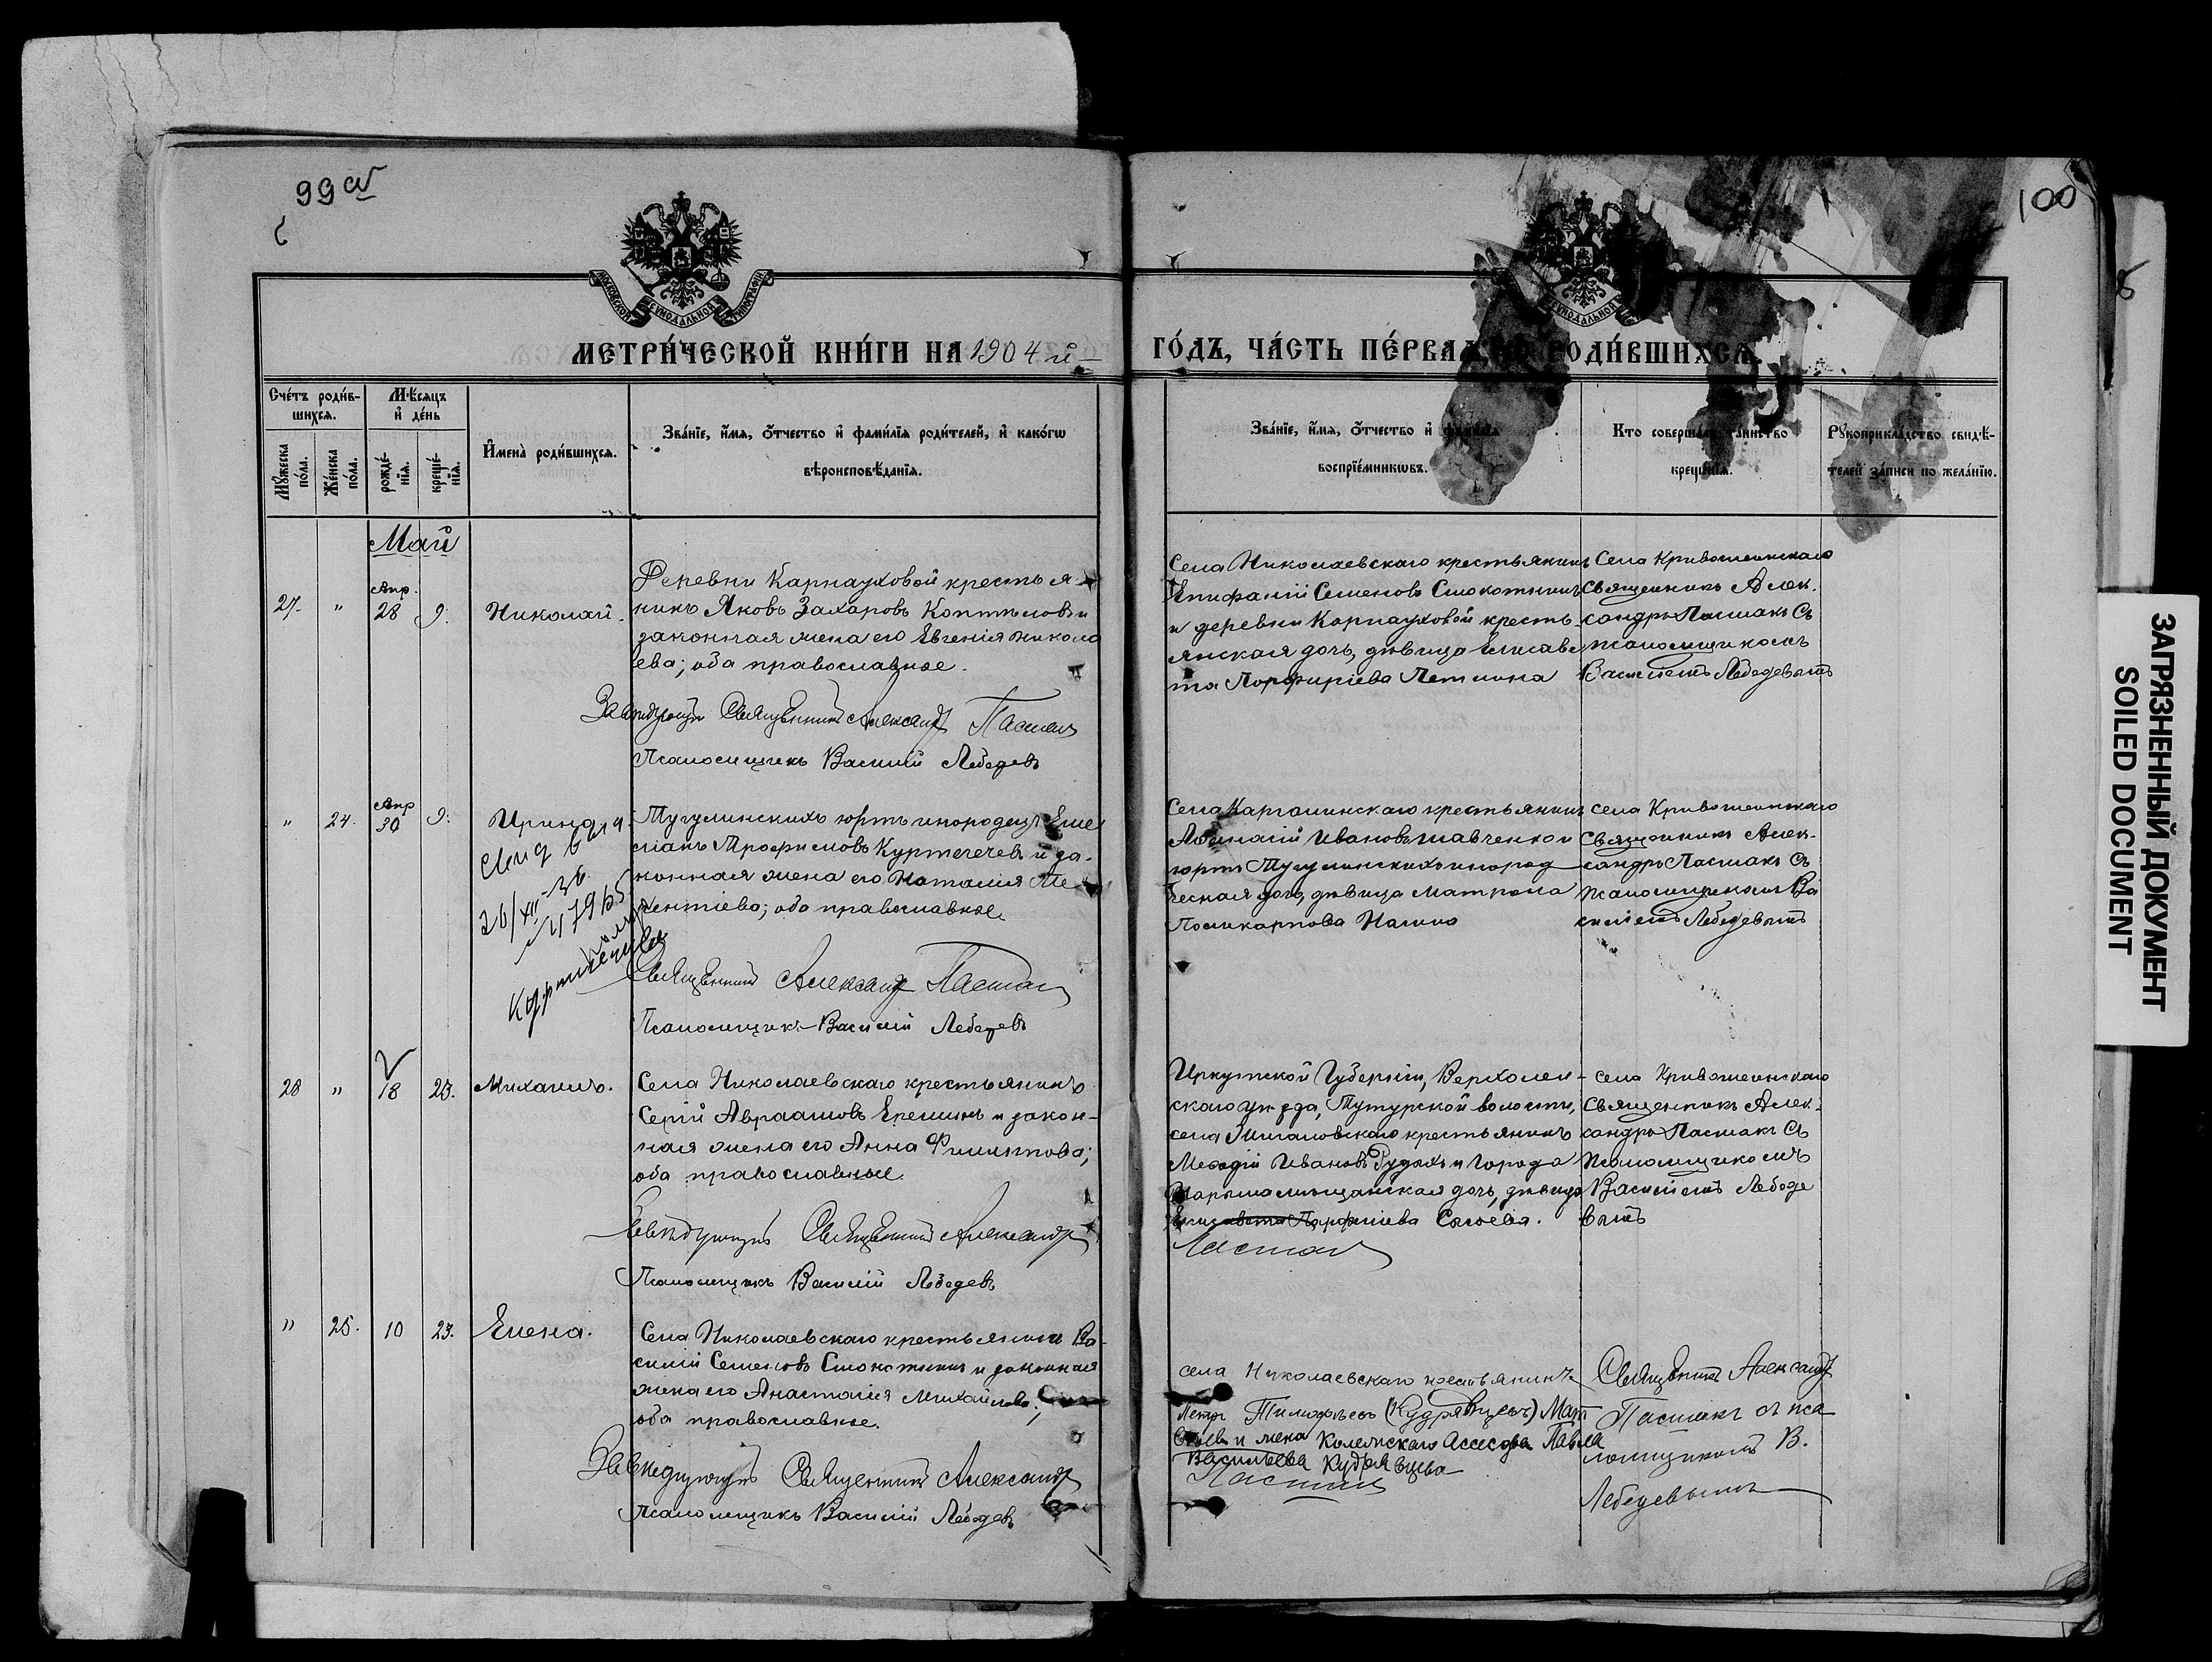 99 об
100
МОСКОВСКОЙ СѴНОДАЛЬНОЙ ТИПОГРАФІИ
СѴНОДАЛЬНОЙ
МЕТРИ́ЧЕСКОЙ КНИ́ГИ НА 1904 й
ГО́ДЪ, ЧА́СТЬ ПЕ́РВАЯ РОДИ́ВШИХСЯ.
Сче́тъ роди́в-
шихся.
Мѣсяцъ
и де́нь
Мꙋжеска по́ла.
Же́нска по́ла.
рожде́-нїя.
креще́-нїя.
Имена̀ роди́вшихся.
Зва́нїе, и́мя, ѻ́тчество и фами́лїя роди́телей, и како́гѡ
вѣроисповѣ́данїя.
Зва́нїе, и́мя, ѻ́тчество и фами́лїя
воспрїе́мникѡвъ.
Кто соверша́лъ та́инство
креще́нїя.
Рꙋкоприкла́дство свидѣ́-
телей за́писи по жела́нїю.
Май
27. " Апр. 28 9. Николай.
Деревни Карнауховой крестья-
нинъ Яковъ Захаровъ Коптѣловъ и
законная жена его Евгенія Никола
ева; оба православные.
Завѣдующій Священникъ Александръ Пасмакъ
Псаломщикъ Василій Лебедевъ
Села Николаевскаго крестьянинъ
Епифаній Семеновъ Смокотнинъ
и деревни Карнауховой кресть-
янская дочь, дѣвица Елисаве
та Порфиріева Петлина
Села Кривошеинскаго
Священникъ Алек-
сандръ Пасмакъ съ
псаломщикомъ
Василіемъ Лебедевымъ
" 24. Апр 30 9. Ириада
26/XII-36
Тугулинскихъ юртъ инородецъ Еме
ліанъ Трофимовъ Куртегечевъ и за-
конная жена его Наталія Те
рентіева; оба православные.
Священникъ Александръ Пасмакъ
Псаломщикъ Василій Лебедевъ
Села Каргалинскаго крестьянинъ
Афанасій Ивановъ Шавченко и
юртъ Тугулинскихъ инород
ческая дочь, дѣвица Матрона
Поликарпова Налина
села Кривошеинскаго
Священникъ Алек-
сандръ Пасмакъ съ
псаломщикомъ Ва
силіемъ Лебедевымъ
28 " 18 23. Михаилъ.
Села Николаевскаго крестьянинъ
Сергій Авраамовъ Еремин и закон-
ная жена его Анна Филиппова;
оба православные.
Завѣдующій Священникъ Александръ
Пасмакъ
Псаломщикъ Василій Лебедевъ
Иркутской Губерніи, Верхолен-
скаго уѣзда, Тутурской волости,
села крестьянинъ
Меѳодій Ивановъ Рудыхъ и города
Нарыма мѣщанская дочь, дѣвица
Елисавета Порфиріева Соловьева.
села Кривошеинскаго
Священникъ Алек-
сандръ Пасмакъ съ
Псаломщикомъ
Василіемъ Лебеде
вымъ
" 25. 10 23. Елена.
Села Николаевскаго крестьянинъ Ва-
силій Семеновъ Смокотнинъ и законная
жена его Анастасія Михайлова;
оба православные.
Завѣдующій Священникъ Александръ
Пасмакъ
Псаломщикъ Василій Лебедевъ
села Николаевскаго крестьянинъ
Петръ Тимофѣевъ (Кудрявцевъ) Мат
вѣевъ и жена Коллежскаго Ассесора Павла
Васильева Кудрявцева
Священникъ Александръ
Пасмакъ съ пса
ломщикомъ В.
Лебедевымъ
ЗАГРЯЗНЕННЫЙ ДОКУМЕНТ
SOILED DOCUMENT